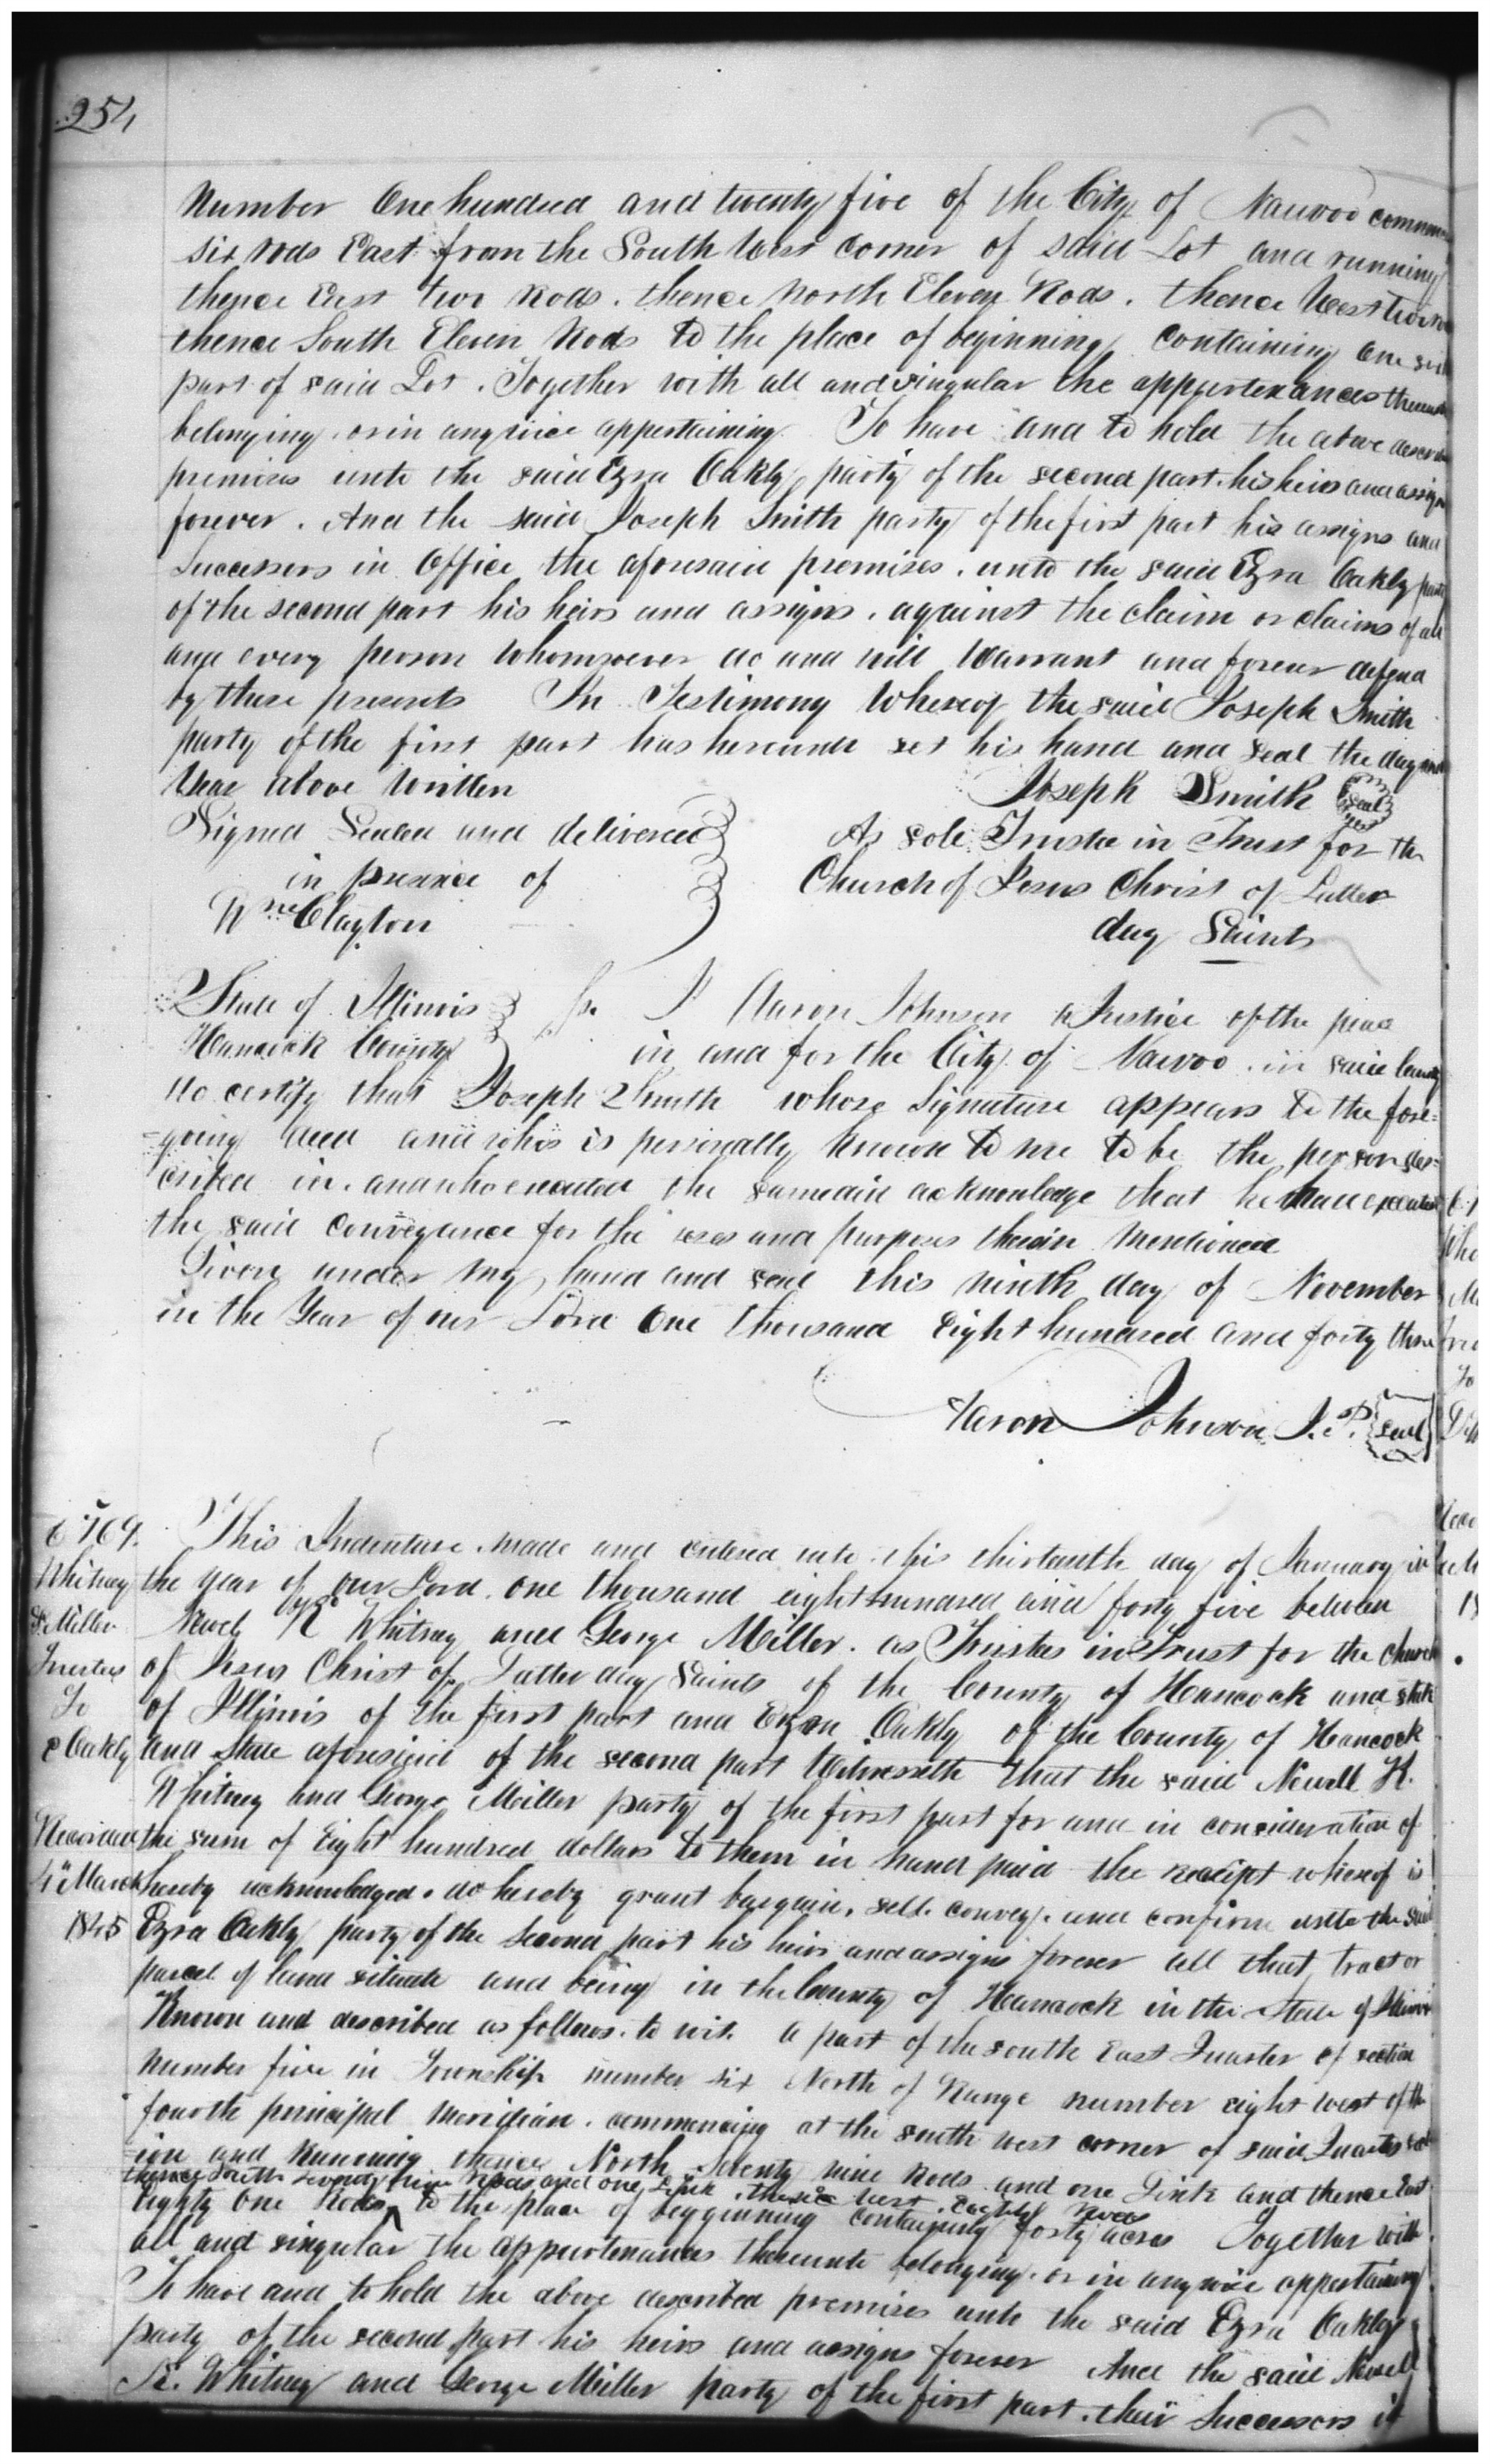 254
Number One hundred and twenty five of the City of Nauvoo
six rods East from the South West Corner of said Lot and running
thence East two Rods. thence North Eleven Rods. thence West two
thence South Eleven Rods to the place of beginning Containing one
part of said Lot. Together with all and singular the appurtenances
belonging. or in any wise appertaining. To have and to hold the above
premises unto the said Ezra Oakly party of the second part. his heirs and assigns
forever. And the said Joseph Smith party of the first part his assigns and
Successors in Office the aforesaid premises. unto the said Ezra Oakly party
of the second part his heirs and assigns. against the claim or claims of all
and every person whomsoever do and will Warrant and forever defend
by these presents In Testimony Whereof the said Joseph Smith
party of the first part has hereunto set his hand and Seal the day and
Year above Written
Joseph Smith Seal
Signed Sealed and delivered
in presence of
Wm Clayton
As sole Trustee in Trust for the
Church of Jesus Christ of Latter
day Saints
State of Illinois
Hancock County
Ss. I Aaron Johnson a Justice of the peace
in and for the City of Nauvoo. in said County
do certify that Joseph Smith whose Signature appears to the fore=
=going deed and who is personally known to me to be the person des=
cribed in. and who executed the same did acknowledge that he had executed
the said conveyance for the uses and purposes therein Mentioned
Given under my hand and seal this ninth day of November
in the Year of our Lord One thousand Eight hundred and forty three
Aaron Johnson J.P. Seal
6769.
Whitney
& Miller
Trustees
To
E Oakly
Recorded
4th March
1845
This Indenture made and entered into this thirteenth day of January in
the year of our Lord. one thousand eight hundred and forty five between
Newel K Whitney and George Miller. as Trustees in Trust for the Church
of Jesus Christ of Latter day Saints of the County of Hancock and State
of Illinois of the first part and Ezra Oakly of the County of Hancock
and State aforesaid of the second part Witnesseth that the said Newell K.
Whitney and George Miller party of the first part for and in consideration of
the sum of Eight hundred dollars to them in hand paid the receipt whereof is
hereby acknowledged. do hereby grant bargain, sell. convey. and confirm unto the said
Ezra Oakly party of the Second part his heirs and assigns forever all that, tract or
parcel of land situate and being in the County of Hancock in the State of Illinois
Known and described as follows. to wit. a part of the South East Quarter of section
number five in Township number six North of Range number eight west of the
fourth principal Meridian. commencing at the south west corner of said Quarter
ion and running thence North Seventy nine Rods and one Link and thence East
thence South seventy nine Rods and one Link. thence West Eighty Rods
Eighty One Rods ^ to the place of begginning containing forty acres Together with
all and singular the appurtenances thereunto belonging. or in anywise appertaining
To have and to hold the above described premises unto the said Ezra Oakley
party of the second part his heirs and assigns forever And the said Newell
K. Whitney and George Miller party of the first part. their Successors in